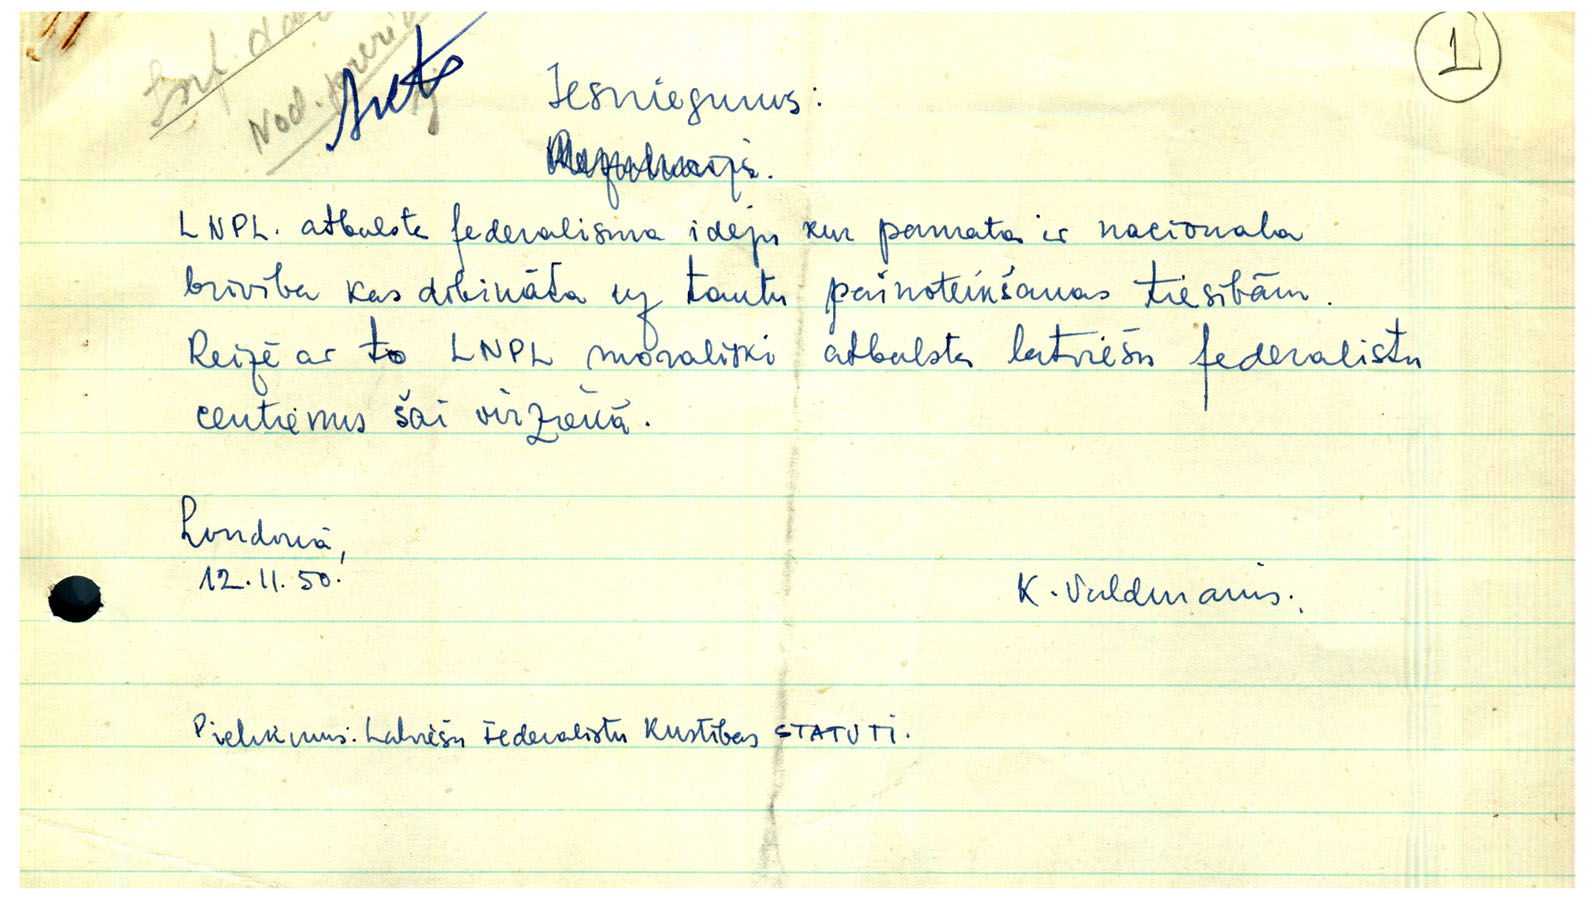 1
Iesniegums:
LNPL. atbalsta federalisma ideju kur pamatā ir nacionala
brīvība kas dibināta uz tautu pašnoteikšanas tiesībām.
Reizē ar to LNPL morāliski atbalsta latviešu federalistu
centienus šai virzienā.
Londonā,
12.11.50.
K. Valdmanis.
Pielikums: Latviešu Federalistu Kustības STATUTI.